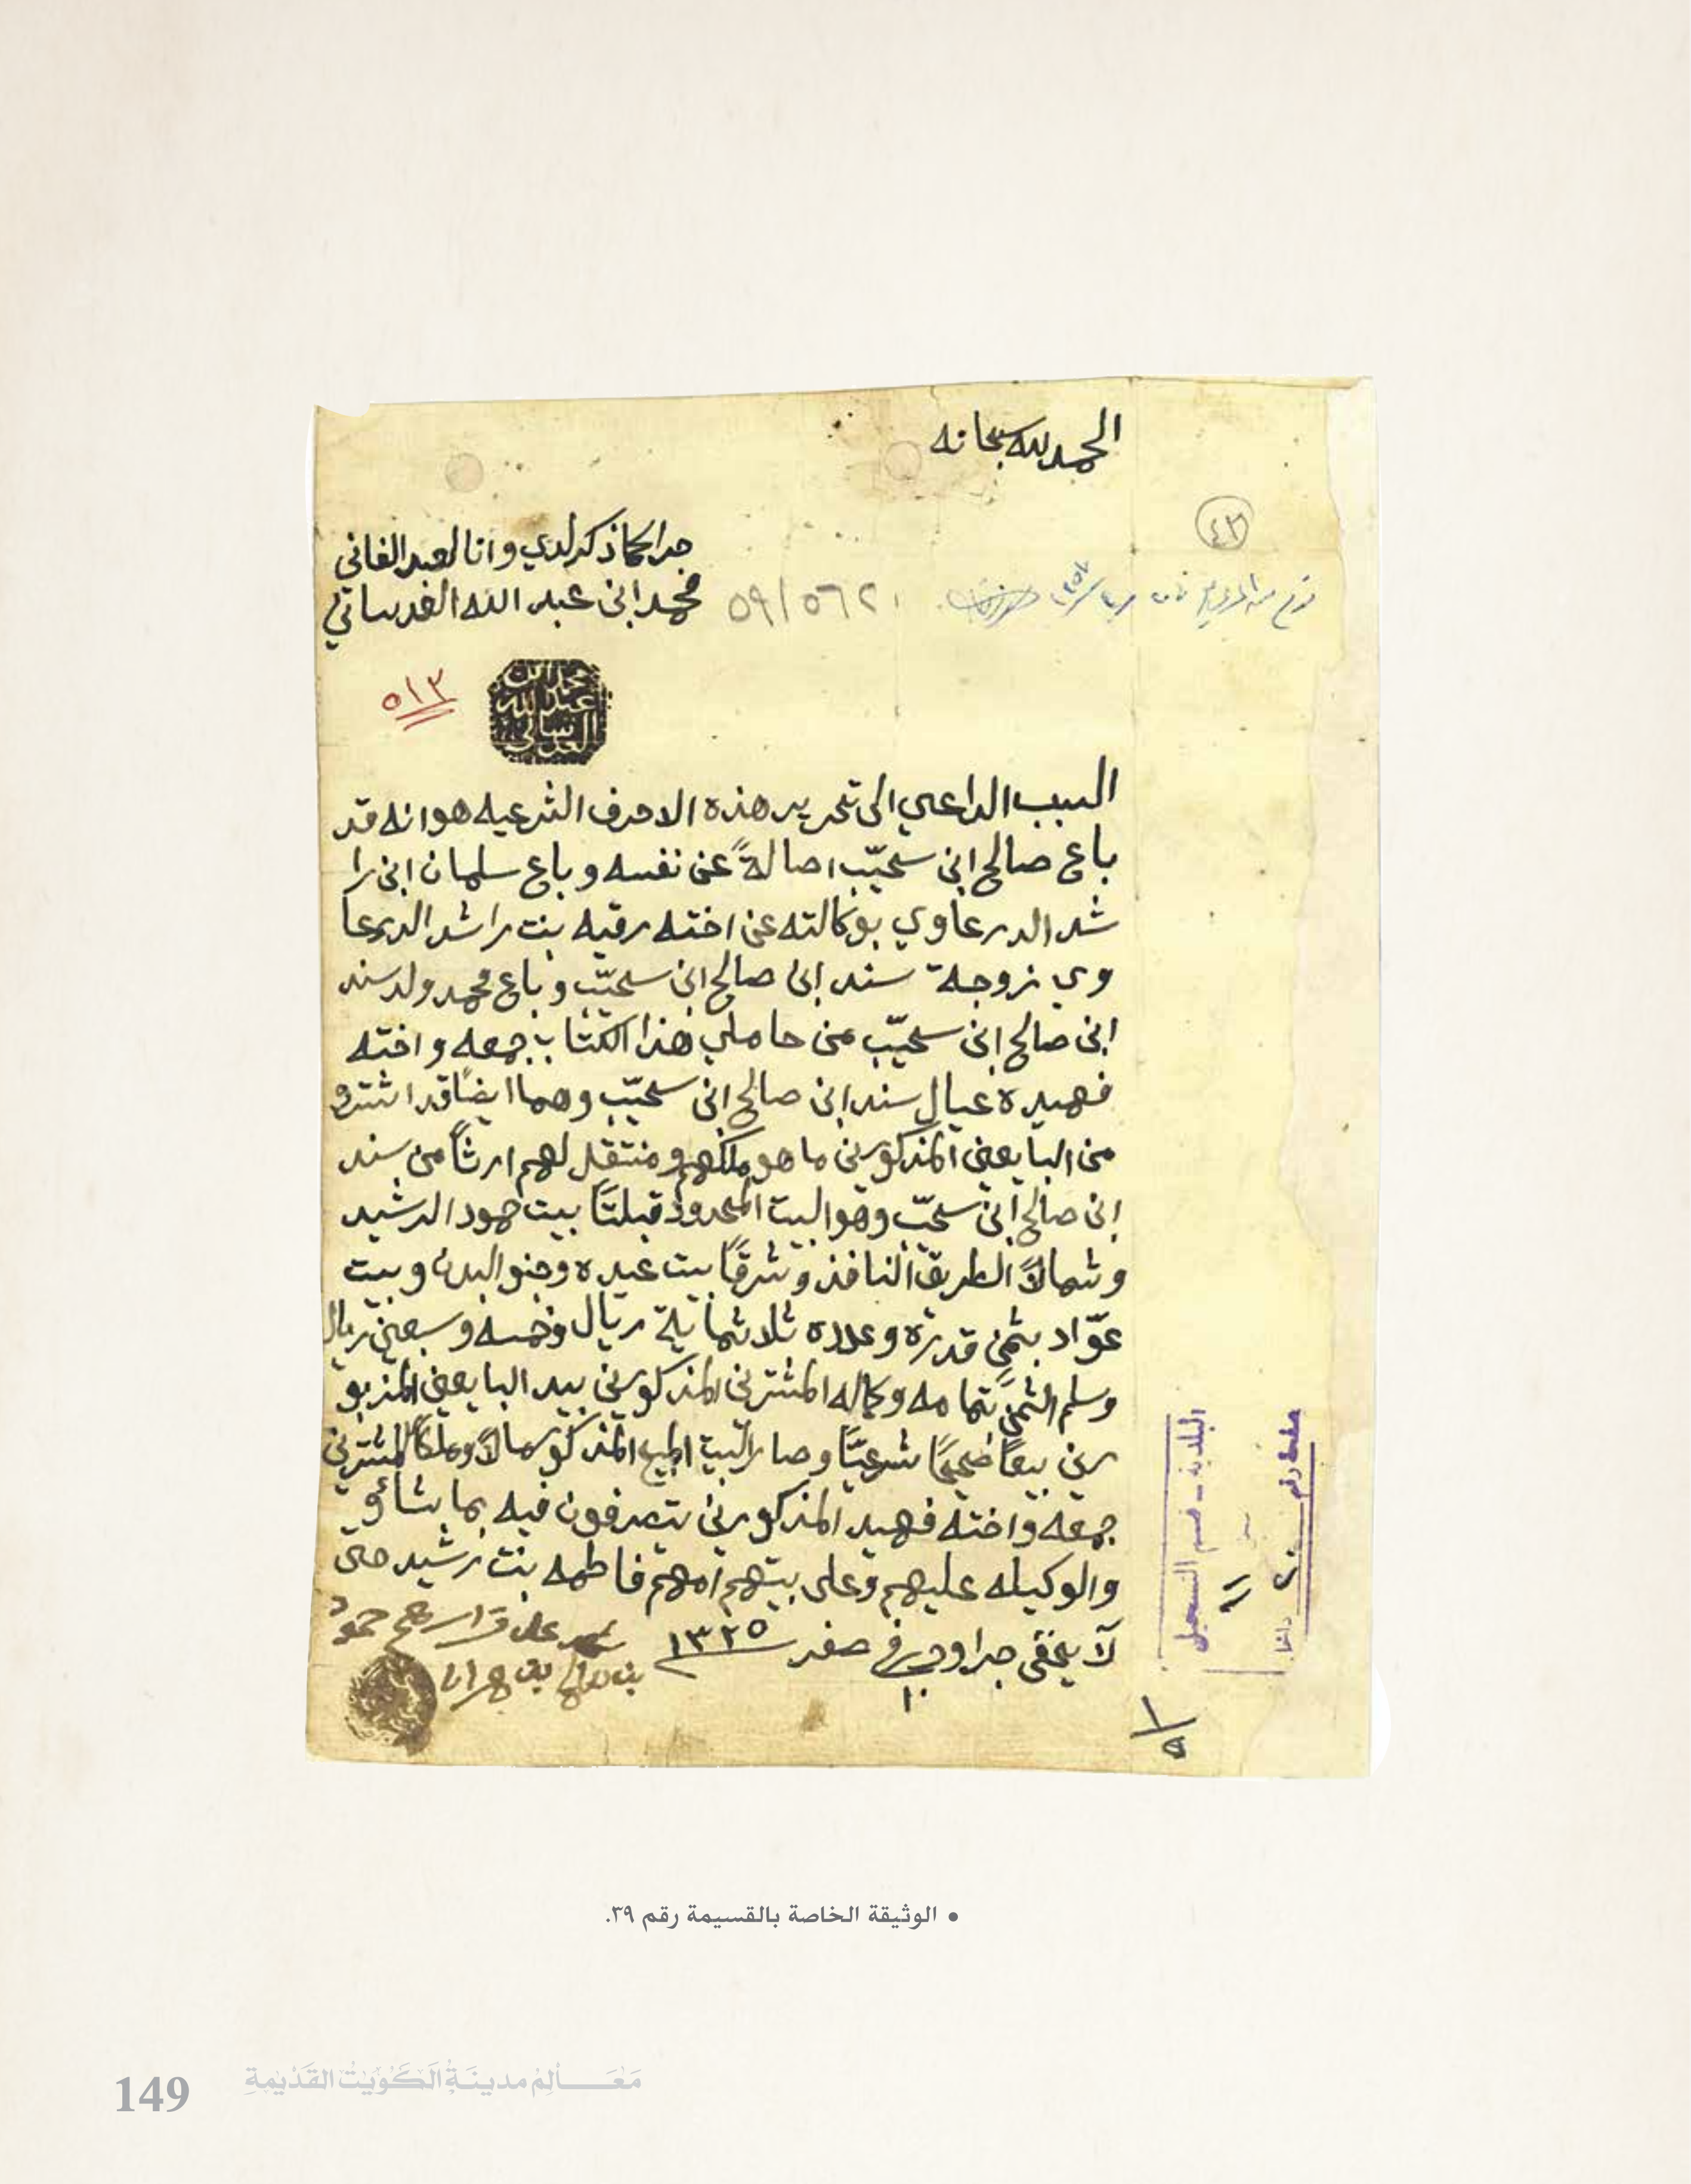 الحمد لله سبحانه
٤٢
جرا كما ذكر لدي وانا العبد الفاني
محمد ابن عبد الله العدساني
٥٩/٥٦٢١
محمد ابن
عبد الله
العدساني
٥١٣
السبب الداعي الى تحرير هذه الاحرف الشرعيه هو انه قد
باع صالح ابن سحيّب اصالةً عن نفسه وباع سلمان ابن را
شد الدرعاوي بوكالته عن اخته رقيه بنت راشد الدرعا
وي زوجة سند ابن صالح ابن سحيّب وباع محمد ولد سند
ابن صالح ابن سحيّب من حاملي هذا الكتاب جمعه واخته
فهيده عيال سند ابن صالح ابن سحيّب وهما ايضًا قد اشترو
من البايعين المذكورين ما هو ملكهم ومنتقل لهم ارثًا من سند
ابن صالح ابن سحيّب وهو البيت المحدود قبلتًا بيت حمود الرشيد
وشمالاً الطريق النافذ وشرقًا بيت عيده وجنوبا البدن وبيت
عوّاد بثمنٍ قدره وعدده ثلاثماية ريال وخمسه وسبعين ريال
وسلم الثمن بتمامه وكماله المشترين المذكورين بيد البايعين المزبو
رين بيعًا صحيحًا شرعيًّا وصار البيت المبيع المذكور مالاً وملكًا للمشترين
جمعه واخته فهيد المذكورين يتصرفون فيه بما يشأو
والوكيله عليهم وعلى بيتهم امهم فاطمه بنت رشيد حتى
لا يخفى جرا وحرر في صفر ١٣٢٥
١٠
بن صالح بن
البلدية - قسم التسجيل
١/٥
• الوثيقة الخاصة بالقسيمة رقم ٣٩.
149 مَعَالِم مدينَة الكُوَيت القَدْيمةِ